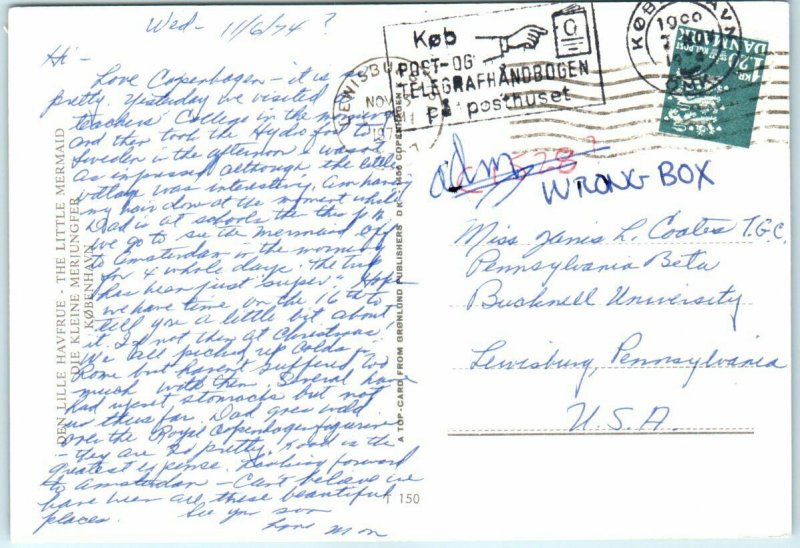 Wed - 11/6/74 ?
Hi -
Love Copenhagen - it is so
pretty. Yesterday we visited
teachers' College in the morning
and then took the Hydrofoil to
Sweden in the afternoon & wasn't
as impressed although the little
was interesting. Am having
my hair done at the moment while
Dad is at schools the this P.M.
we go to see the mermaid. Off
to Amsterdam in the morning
for 4 whole days. The trip
has been just "super". Hope
we have time on the 16th to
tell you a little bit about
it. If not then at Christmas!
We all picked up colds in
Rome but haven't suffered too
much with them. Several have
had upset stomachs but not
us thus far. Dad goes wild
over the Royal Copenhagen figurines
- they are so pretty. Food is the
greatest expense. Looking forward
to Amsterdam - Can't believe we
have been all these beautiful
places. See you soon
Love Mom
DEN LILLE HAVFRUE - THE LITTLE MERMAID
DIE KLEINE MERJUNGFER
KØBENHAVN
A TOP-CARD FROM GRØNLUND PUBLISHERS DK COPENHAGEN
T 150
LEWISBURG
NOV
Køb
POST- OG
TELEGRAFHÅNDBOGEN
på posthuset
KØBENHAVN
DANMARK
WRONG BOX
Miss Janis L. Coates T.G.C.
Pennsylvania Beta
Bucknell University
Lewisburg, Pennsylvania
U.S.A.